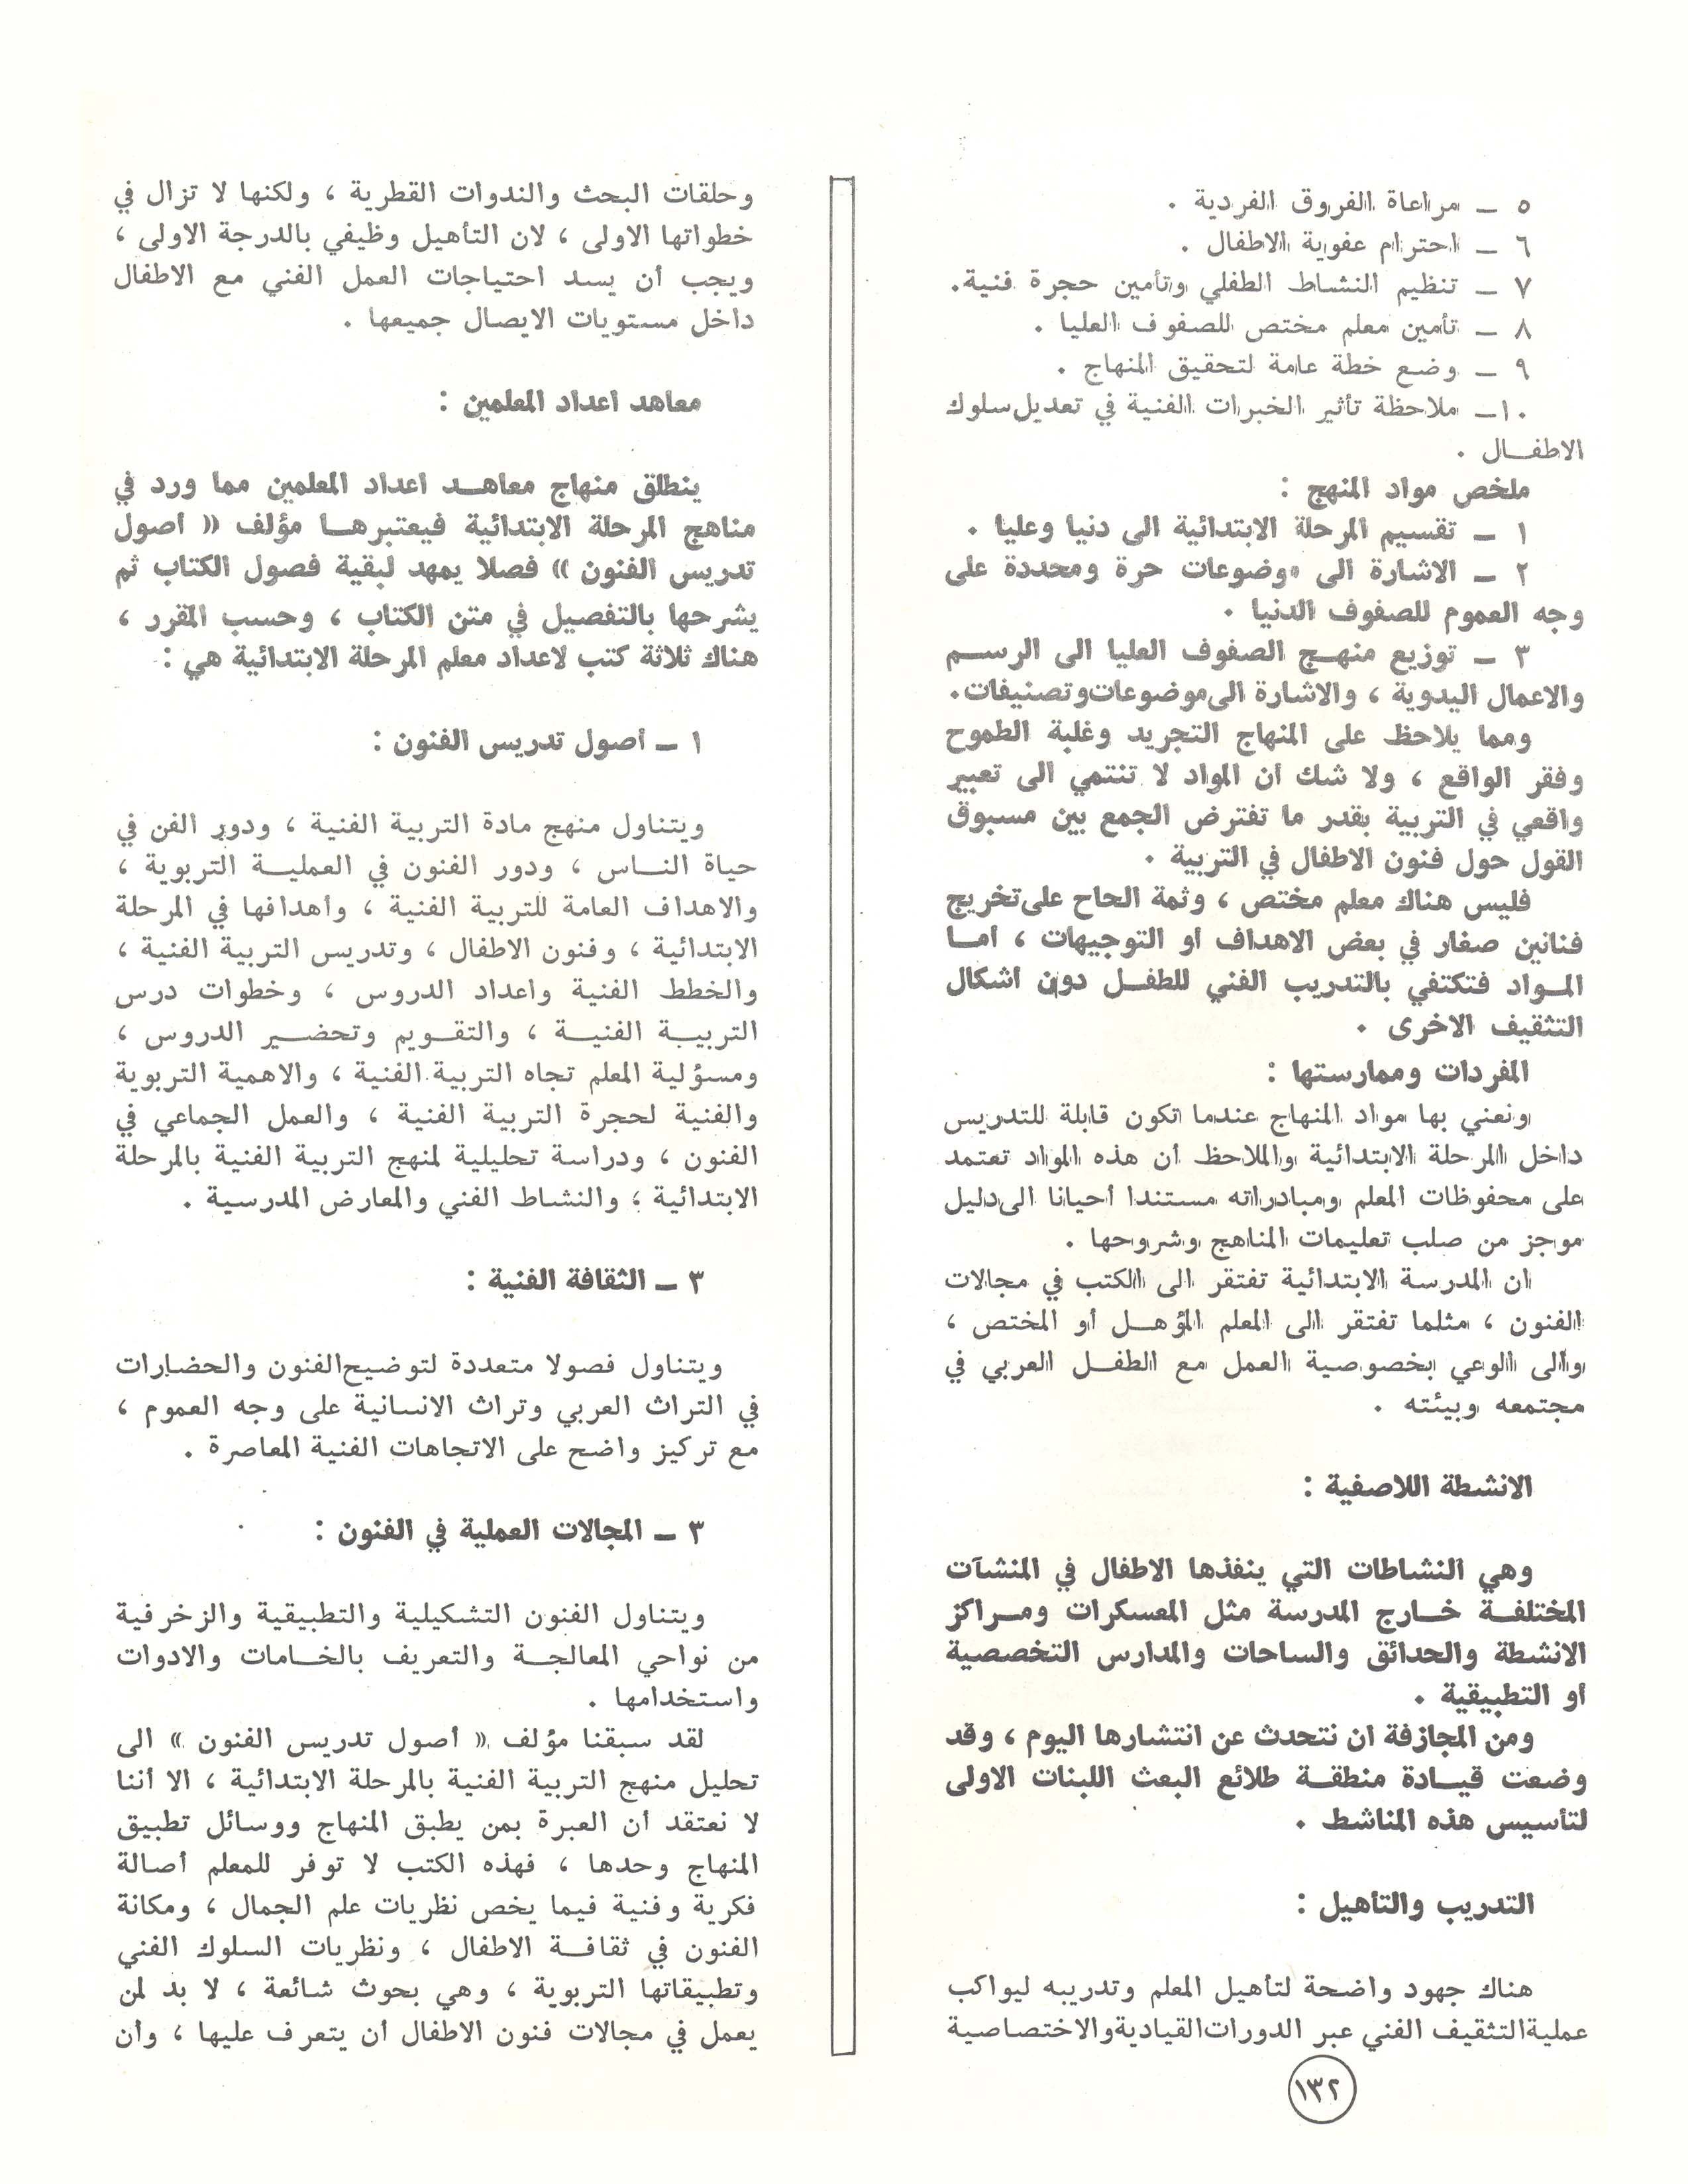 ٥ ــ مراعاة الفروق الفردية .
٦ ــ احترام عفوية الاطفال .
٧ ــ تنظيم النشاط الطفلي وتأمين حجرة فنية.
٨ ــ تأمين معلم مختص للصفوف العليا .
٩ ــ وضع خطة عامة لتحقيق المنهاج .
١٠ــ ملاحظة تأثير الخبرات الفنية في تعديل سلوك
الاطفــال .
ملخص مواد المنهج :
١ ــ تقسيم المرحلة الابتدائية الى دنيا وعليا .
٢ ــ الاشارة الى موضوعات حرة ومحددة على
وجه العموم للصفوف الدنيا .
٣ ــ توزيع منهــج الصفوف العليا الى الرســم
والاعمال اليدوية ، والاشارة الى موضوعات وتصنيفات.
ومما يلاحظ على المنهاج التجريد وغلبة الطموح
وفقر الواقع ، ولا شك أن المواد لا تنتمي الى تعبير
واقعي في التربية بقدر ما تفترض الجمع بين مسبوق
القول حول فنون الاطفال في التربية .
فليس هناك معلم مختص ، وثمة الحاح على تخريج
فنانين صغار في بعض الاهداف أو التوجيهات ، أمــا
المــواد فتكتفي بالتدريب الفني للطفــل دون أشكال
التثقيف الاخرى .
المفردات وممارستها :
ونعني بها مواد المنهاج عندما تكون قابلة للتدريس
داخل المرحلة الابتدائية والملاحظ أن هذه المواد تعتمد
على محفوظات المعلم ومبادراته مستندا أحيانا الى دليل
موجز من صلب تعليمات المناهج وشروحها .
ان المدرسة الابتدائية تفتقر الى الكتب في مجالات
الفنون ، مثلما تفتقر الى المعلم المؤهــل أو المختص ،
والى الوعي بخصوصية العمل مع الطفــل العربي في
مجتمعه وبيئته .
الانشطة اللاصفية :
وهي النشاطات التي ينفذها الاطفال في المنشآت
المختلفــة خــارج المدرسة مثل المعسكرات ومــراكز
الانشطة والحدائق والساحات والمدارس التخصصية
أو التطبيقية .
ومن المجازفة ان نتحدث عن انتشارها اليوم ، وقد
وضعت قيــادة منطقــة طلائع البعث اللبنات الاولى
لتأسيس هذه المناشط .
التدريب والتأهيل :
هناك جهود واضحة لتأهيل المعلم وتدريبه ليواكب
عملية التثقيف الفني عبر الدورات القيادية والاختصاصية
وحلقات البحث والندوات القطرية ، ولكنها لا تزال في
خطواتها الاولى ، لان التأهيل وظيفي بالدرجة الاولى ،
ويجب أن يسد احتياجات العمل الفني مع الاطفال
داخل مستويات الايصال جميعها .
معاهد اعداد المعلمين :
ينطلق منهاج معاهــد اعداد المعلمين مما ورد في
مناهج المرحلة الابتدائية فيعتبرهــا مؤلف « أصول
تدريس الفنون » فصلا يمهد لبقية فصول الكتاب ثم
يشرحها بالتفصيل في متن الكتاب ، وحسب المقرر ،
هناك ثلاثة كتب لاعداد معلم المرحلة الابتدائية هي :
١ ــ أصول تدريس الفنون :
ويتناول منهج مادة التربية الفنية ، ودور الفن في
حياة النــاس ، ودور الفنون في العمليــة التربوية ،
والاهداف العامة للتربية الفنية ، وأهدافها في المرحلة
الابتدائية ، وفنون الاطفال ، وتدريس التربية الفنية ،
والخطط الفنية واعداد الدروس ، وخطوات درس
التربيــة الفنيــة ، والتقــويم وتحضــير الدروس ،
ومسؤلية المعلم تجاه التربية الفنية ، والاهمية التربوية
والفنية لحجرة التربية الفنية ، والعمل الجماعي في
الفنون ، ودراسة تحليلية لمنهج التربية الفنية بالمرحلة
الابتدائية ؛ والنشاط الفني والمعارض المدرسية .
٣ ــ الثقافة الفنية :
ويتناول فصولا متعددة لتوضيح الفنون والحضارات
في التراث العربي وتراث الانسانية على وجه العموم ،
مع تركيز واضح على الاتجاهات الفنية المعاصرة .
٣ ــ المجالات العملية في الفنون :
ويتناول الفنون التشكيلية والتطبيقية والزخرفية
من نواحي المعالجــة والتعريف بالخــامات والادوات
واستخدامها .
لقد سبقنا مؤلف « أصول تدريس الفنون » الى
تحليل منهج التربية الفنية بالمرحلة الابتدائية ، الا أننا
لا نعتقد أن العبرة بمن يطبق المنهاج ووسائل تطبيق
المنهاج وحدها ، فهذه الكتب لا توفر للمعلم أصالة
فكرية وفنية فيما يخص نظريات علم الجمال ، ومكانة
الفنون في ثقافــة الاطفال ، ونظريات السلوك الفني
وتطبيقاتها التربوية ، وهي بحوث شائعة ، لا بد لمن
يعمل في مجالات فنون الاطفال أن يتعرف عليها ، وأن
١٣٢